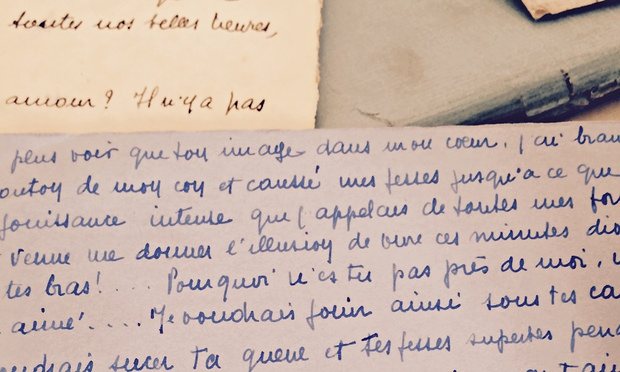 toutes nos belles heures,
amour ? Il n'y a pas
peus voir que ton image dans mon cœur. j'ai bran
outon de mon con et caressé mes fesses jusqu'à ce que
jouissance intense que j'appelais de toutes mes for
venue me donner l'illusion de vivre ces minutes di
tes bras ! .... Pourquoi n'es tu pas près de moi,
aimé .... Je voudrais jouir ainsi sous tes ca
oudrais sucer ta queue et tes fesses superbes pend